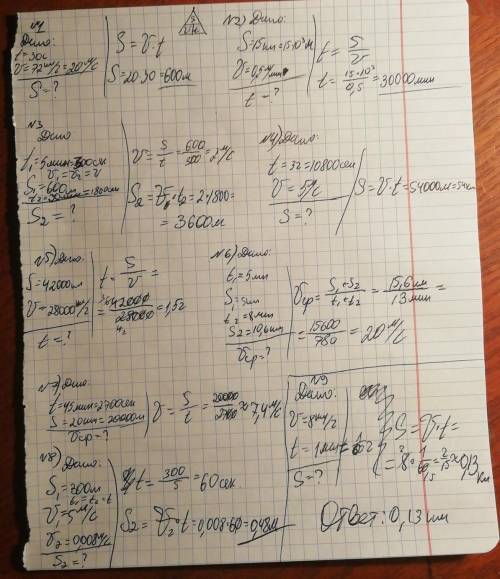 №1
Дано:
t=30с
V=72км/ч=20м/с
S=?
S=V·t
S=20·30=600м
S
V|t
№2) Дано:
S=15км=15·10³м
V=0,5м/мин
t=?
t=S/V
t=15·10³/0,5=30000мин
№3
Дано
t₁=5мин=300сек
V₁=V₂=V
S₁=600м
t₂=30мин=1800сек
S₂=?
V=S/t=600/300=2м/с
S₂=V·t₂=2·1800=
=3600м
№4) Дано:
t=3ч=10800сек
V=5м/с
S=?
S=V·t=54000м=54км
№5) Дано:
S=42000м
V=28000м/ч
t=?
t=S/V=
=42000/28000=1,5ч
№6) Дано:
t₁=5мин
S₁=5км
t₂=8мин
S₂=10,6км
Vср=?
Vср=S₁+S₂/t₁+t₂=15,6км/13мин=
=15600/780=20м/с
№7) Дано:
t=45мин=2700сек
S=20км=20000м
Vср=?
V=S/t=20000/2700≈7,4м/с
№8) Дано:
S₁=300м
t₁=t₂=t
V₁=5м/с
V₂=0,008м/с
S₂=?
t=300/5=60сек
S₂=V₂·t=0,008·60=0,48м
№9
Дано:
V=8км/ч
t=1мин=
S=?
S=V·t=
=8·1/60=2/15≈0,13км
Ответ: 0,13км